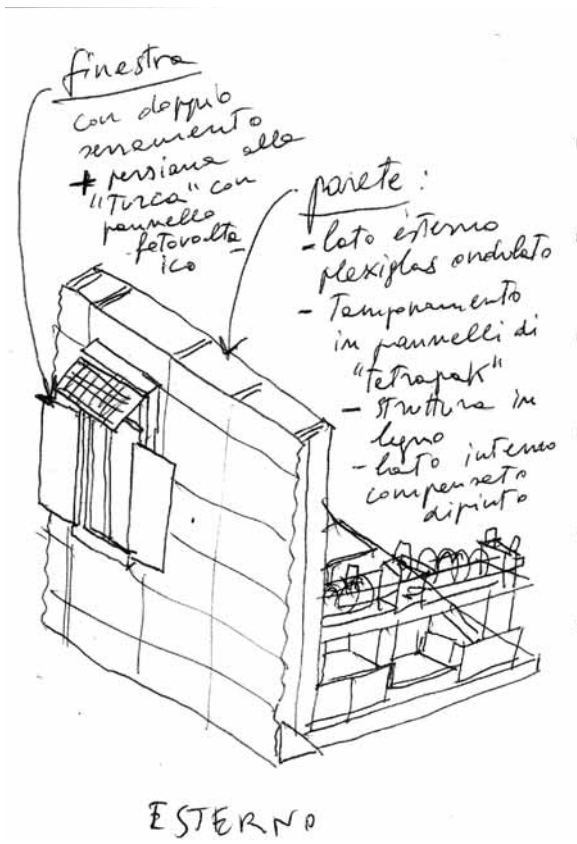 finestra
con doppio
serramento
+ persiana alla
"Turca" con
pannello
fotovolta
ico
parete:
- lato esterno
plexiglas ondulato
- Tamponamento
in pannelli di
"tetrapak"
- struttura in
legno
- lato interno
compensato
dipinto
ESTERNO